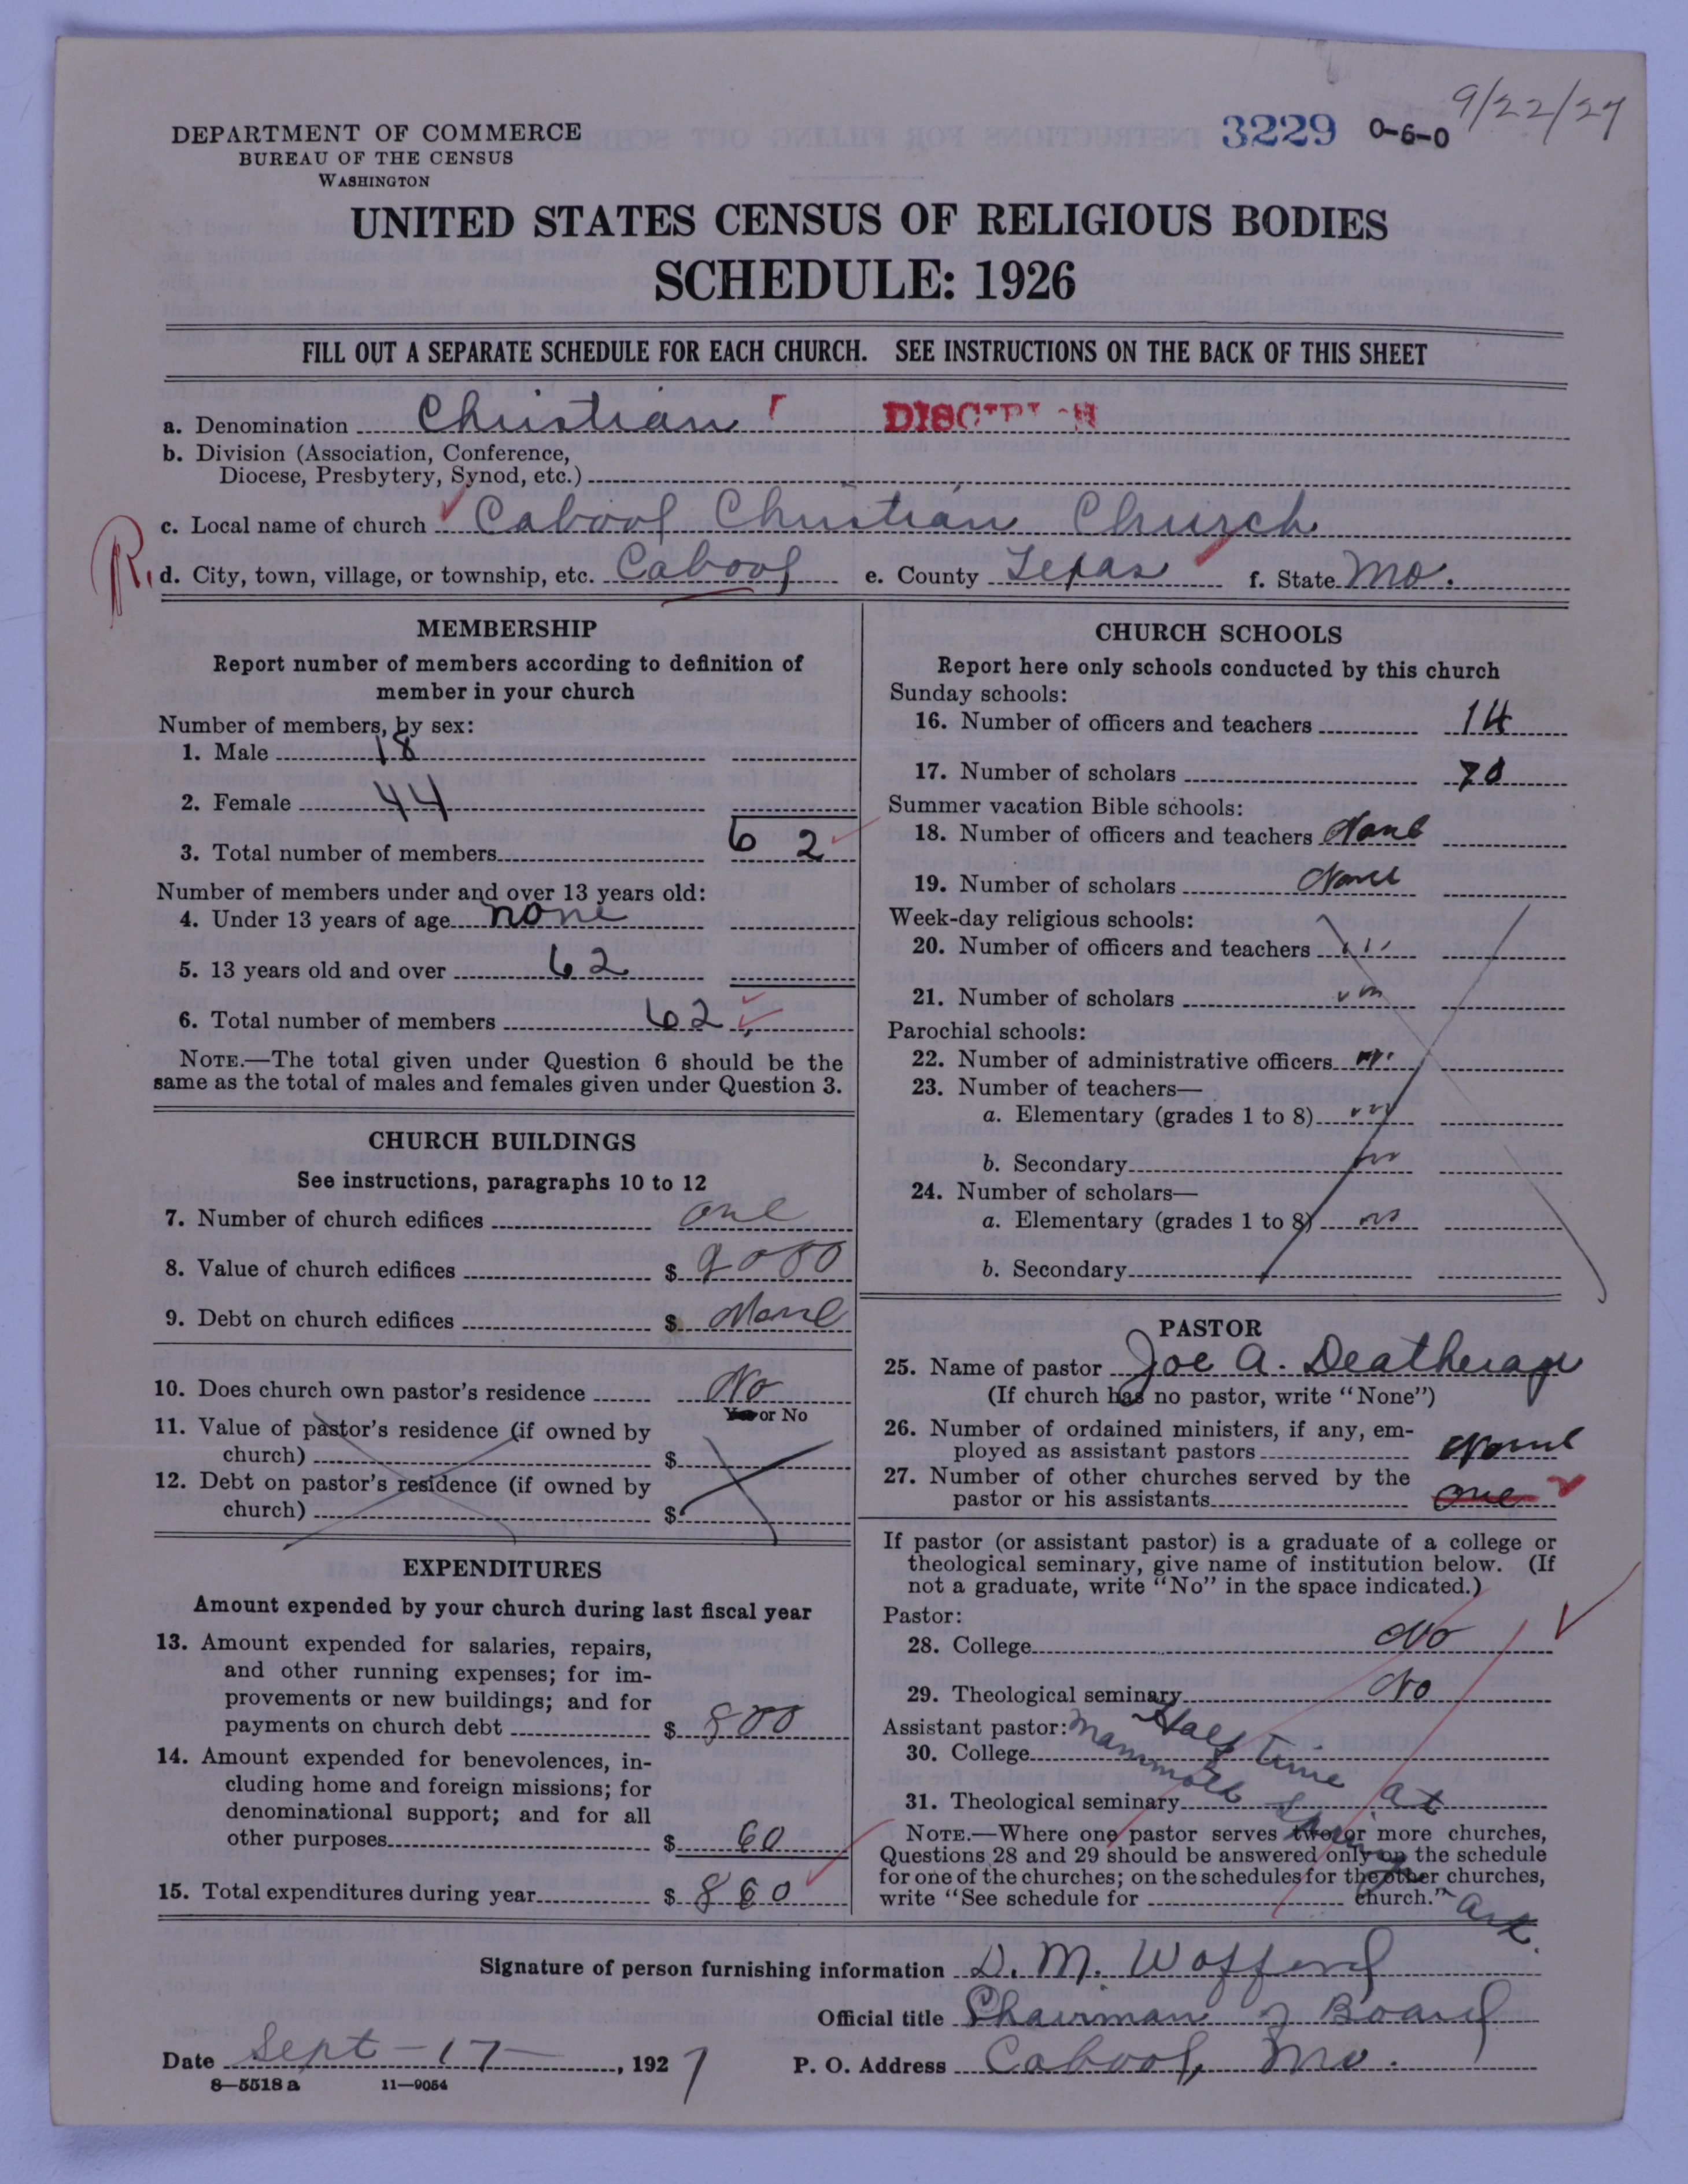 9/22/27
3229 0-6-0
DEPARTMENT OF COMMERCE
BUREAU OF THE CENSUS
WASHINGTON
UNITED STATES CENSUS OF RELIGIOUS BODIES
SCHEDULE: 1926
FILL OUT A SEPARATE SCHEDULE FOR EACH CHURCH. SEE INSTRUCTIONS ON THE BACK OF THIS SHEET
a. Denomination Christian
b. Division (Association, Conference,
Diocese, Presbytery, Synod, etc.)
c. Local name of church Cabool Christian Church
R. d. City, town, village, or township, etc. Cabool e. County Texas f. State Mo.
MEMBERSHIP
Report number of members according to definition of
member in your church
Number of members, by sex:
1. Male 18
2. Female 44
3. Total number of members 62
Number of members under and over 13 years old:
4. Under 13 years of age none
5. 13 years old and over 62
6. Total number of members 62
NOTE.—The total given under Question 6 should be the
same as the total of males and females given under Question 3.
CHURCH BUILDINGS
See instructions, paragraphs 10 to 12
7. Number of church edifices one
8. Value of church edifices $ 9000
9. Debt on church edifices $ None
10. Does church own pastor's residence No
Yes or No
11. Value of pastor's residence (if owned by
church) $
12. Debt on pastor's residence (if owned by
church) $
EXPENDITURES
Amount expended by your church during last fiscal year
13. Amount expended for salaries, repairs,
and other running expenses; for im-
provements or new buildings; and for
payments on church debt $ 800
14. Amount expended for benevolences, in-
cluding home and foreign missions; for
denominational support; and for all
other purposes $ 60
15. Total expenditures during year $ 860
CHURCH SCHOOLS
Report here only schools conducted by this church
Sunday schools:
16. Number of officers and teachers 14
17. Number of scholars 70
Summer vacation Bible schools:
18. Number of officers and teachers None
19. Number of scholars None
Week-day religious schools:
20. Number of officers and teachers
21. Number of scholars
Parochial schools:
22. Number of administrative officers
23. Number of teachers—
a. Elementary (grades 1 to 8)
b. Secondary
24. Number of scholars—
a. Elementary (grades 1 to 8)
b. Secondary
PASTOR
25. Name of pastor Joe A. Deatherage
(If church has no pastor, write "None")
26. Number of ordained ministers, if any, em-
ployed as assistant pastors None
27. Number of other churches served by the
pastor or his assistants one
If pastor (or assistant pastor) is a graduate of a college or
theological seminary, give name of institution below. (If
not a graduate, write "No" in the space indicated.)
Pastor:
28. College No
29. Theological seminary No
Assistant pastor:
30. College
31. Theological seminary
Half Time at
Mammoth Spring Ark.
NOTE.—Where one pastor serves two or more churches,
Questions 28 and 29 should be answered only on the schedule
for one of the churches; on the schedules for the other churches,
write "See schedule for church."
Signature of person furnishing information D. M. Wofford
Official title Chairman of Board
Date Sept-17-, 1927 P. O. Address Cabool, Mo.
8-5518 a 11-9054